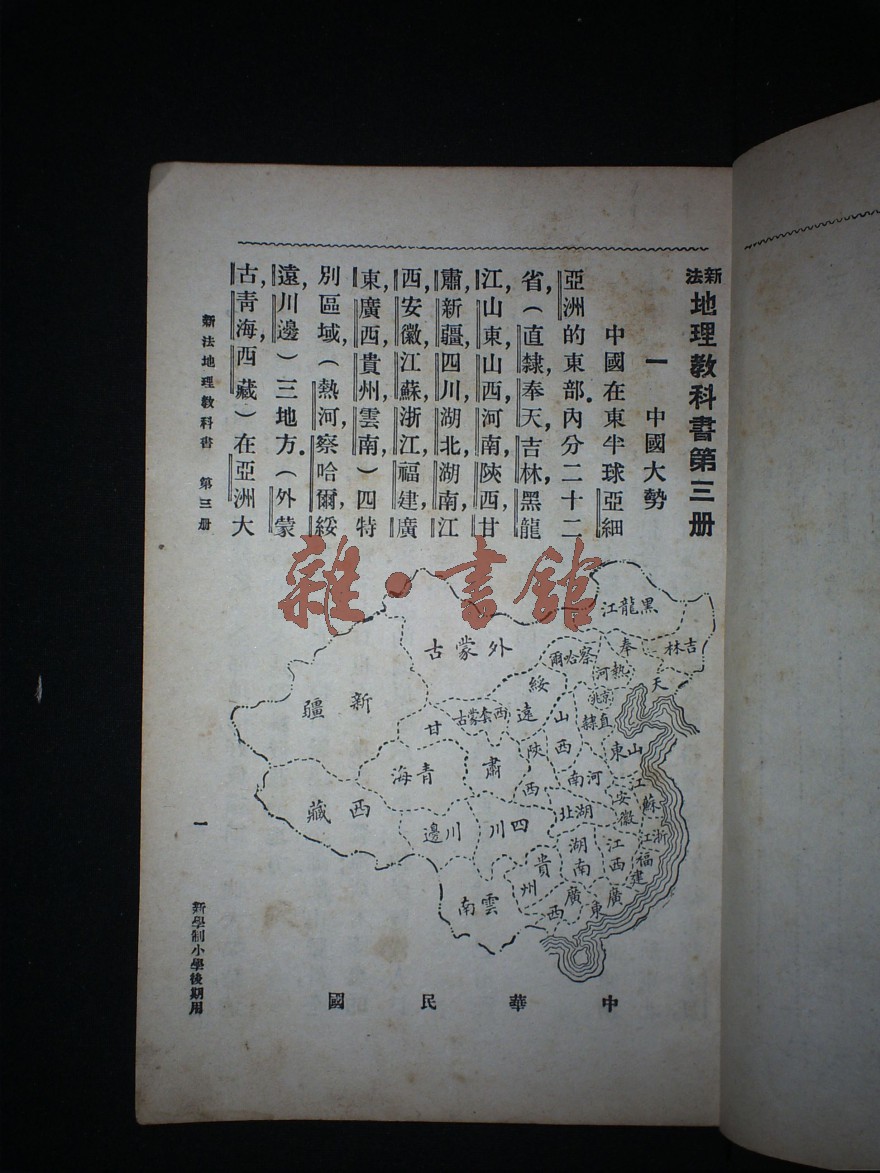 新法地理教科書第三册
一　中國大勢
中國在東半球亞細
亞洲的東部。內分二十二
省，（直隸，奉天，吉林，黑龍
江，山東，山西，河南，陝西，甘
肅，新疆，四川，湖北，湖南，江
西，安徽，江蘇，浙江，福建，廣
東，廣西，貴州，雲南）四特
別區域，（熱河，察哈爾，綏
遠，川邊）三地方。（外蒙
古，青海，西藏）在亞洲大
新法地理教科書　第三册
一
新學制小學後期用
雜·書館
江龍黑
吉林
奉天
爾哈察
河熱
古蒙外
綏遠
兆京
隸直
疆新
甘肅
古蒙套西
山西
東山
陝西
海青
南河
江蘇
安徽
藏西
邊川
川四
北湖
江浙
湖南
江西
福建
貴州
南雲
廣西
廣東
國民華中